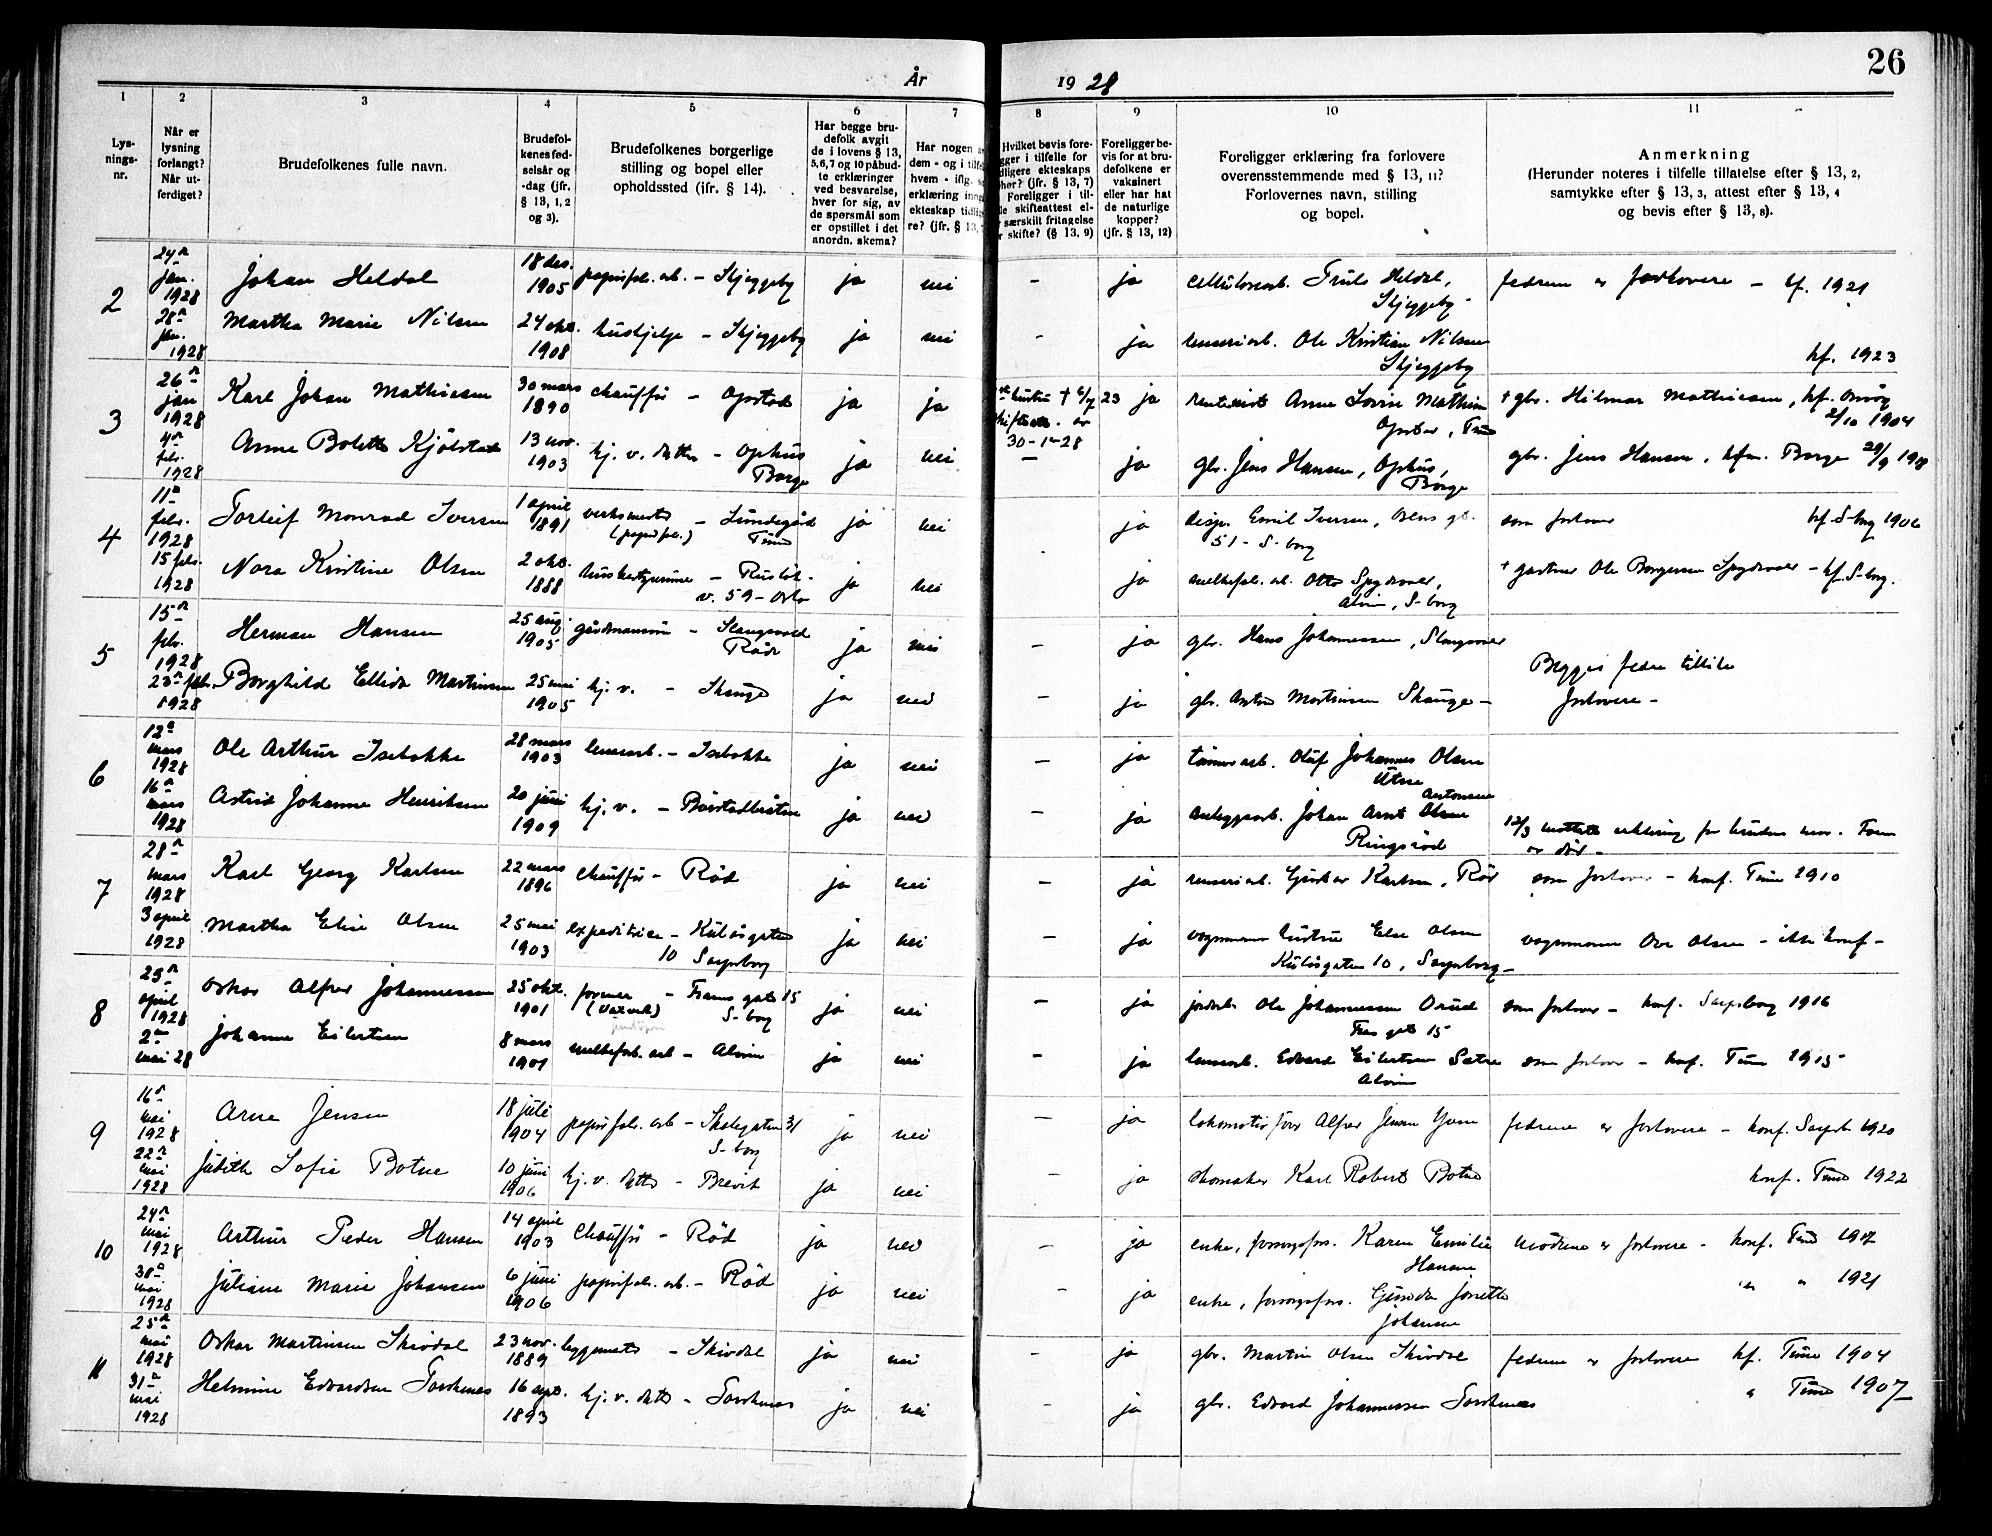 26
År 1928
1 2 3 4 5 6 7 8 9 10 11
Lys-
nings-
nr.
Når er
lysning
forlangt?
Når ut-
ferdiget?
Brudefolkenes fulle navn.
Brudefol-
kenes fød-
selsår og
-dag (jfr.
§ 13, 1, 2
og 3).
Brudefolkenes borgerlige
stilling og bopel eller
opholdssted (ifr. § 14).
Har begge bru-
defolk avgit
de i lovens § 13,
5,6,7 og 10 påbud-
te erklæringer
ved besvarelse,
hver for sig, av
de spørsmål som
er opstillet i det
anordn. skema?
Har nogen a
dem - og i tilf
hvem - iflg.
erklæring inn
ekteskap tidli
re? (jfr. § 13,
Hvilket bevis fore-
gger i tilfelle for
dligere ekteskaps
hør? (jfr. § 13, 7)
Foreligger i til-
le skifteattest el-
særskilt fritagelse
skifte? (§ 13, 9)
Foreligger be-
vis for at bru-
defolkene er
vaksinert
eller har hat
de naturlige
kopper?
(jfr. § 13, 12)
Foreligger erklæring fra forlovere
overensstemmende med § 13, 11?
Forlovernes navn, stilling
og bopel.
Anmerkning
(Herunder noteres i tilfelle tillatelse efter § 13, 2,
samtykke efter § 13, 3, attest efter § 13, 4
og bevis efter § 13, 8).
2
24n jan. 1928
Johan Heldal
18 des. 1905
papirfab. arb. – Skjeggeby
ja nei – ja
cellulosearb. Truls Heldal,
Skjeggeby
fedrene er forlovere – kf. 1921
28n jan. 1928
Martha Marie Nilsen
24 okt. 1908
hushjelp – Skjeggeby
ja nei – ja
renseriarb. Ole Kristian Nilsen
Skjeggeby
kf. 1923
3
26n jan 1928
Karl Johan Mathiesen
30 mars 1890
chauffør – Opstad
ja ja
hustru † 6/7 23
30-1-28
ja
Anne Lovise Mathies
Opstad, Tune
† gbr. Hilmar Mathiesen, kf.
2/10 1904
4n feb. 1928
Anne Bolette Kjølstad
13 nov. 1903
hj. v. datter – Ophus
Borge
ja nei – ja
gbr. Jens Hansen, Ophus,
Borge
gbr. Jens Hansen, kfm. Borge
4
11n febr. 1928
Torleif Monrad Iversen
1 april 1891
verksmester – Lundegård
(papirfab.) Tune
ja nei ja
disp. Emil Iversen, Olens gt.
51 – S-borg
som forlover kf. S-borg 1906
15 feb. 1928
Nora Kristine Olsen
2 okt. 1888
husbestyrerinne – Rusløk-
v. 59 – Oslo
ja nei - ja
melkefab. arb. Otto Spydevoer,
Alvim, S-borg
† gartner Ole Borgersen Spydevoer – kf. S-borg.
5
15n febr. 1928
Herman Hansen
25 aug. 1905
gårdmannssønn – Slangsvold
Råde
ja nei – ja
gbr. Hans Johannessen, Slangsvold
Begges fedre tillike
forlovere –
23n feb. 1928
Borghild Ellida Martinsen
25 mai 1905
hj. v. – Skauge
ja nei – ja
gbr. Anton Martinsen Skauge –
6
12n mars 1928
Ole Arthur Isebakke
28 mars 1903
lensearb. – Isebakke
ja nei – ja
tømmerarb. Oluf Johannes Olsen
Utne
16n mars 1928
Astrid Johanne Henriksen
20 juni 1909
hj. v. – Borstadbråten
ja nei – ja
anleggsarb. Johan Arnt Antonsen
Ringsrød
12/3 mottatt erklæring fra brudens mor. Faren
er død –
7
28n mars 1928
Karl Georg Karlsen
22 mars 1896
chauffør – Rød
ja nei – ja
renseriarb. Gustav Karlsen, Rød
som forlover – konf. Tune 1910
3 april 1928
Martha Elise Olsen
25 mai 1903
expeditrice – Kulåsgaten
10 Sarpsborg
ja nei – ja
vognmann hustru Else Olsen
Kulåsgaten 10, Sarpsborg –
vognmann Ove Olsen – ikke konf –
8
25n april 1928
Oskar Alfred Johannessen
25 okt. 1901
former – Frams gate 15
S-borg
ja nei – ja
Ole Johannessen
gate 15
som forlover – konf. Sarpsborg 1916
2n mai 28
Johanne Eilertsen
8 mars 1901
melkefab. arb – Alvim
ja nei – ja
lensearb. Edvard Eilertsen Sætre
Alvim
som forlover – konf. Tune 1915
9
16n mai 1928
Arne Jensen
18 juli 1904
papirfab. arb – Skolegaten 31
S-borg
ja nei – ja
lokomotivfører Alfred Jensen
fedrene er forlovere – konf. Sarpsb 1920
22n mai 1928
Judith Sofie Botne
10 juni 1906
hj. v. datter – Brevik
ja nei – ja
skomaker Karl Robert Botne
konf. Tune 1922
10
24n mai 1928
Arthur Peder Hansen
14 april 1903
chauffør – Rød
ja nei – ja
enke, forsorgsfors. Karen Emilie
Hansen
mødrene er forlovere – konf. Tune 1917
30n mai 1928
Juliane Marie Johansen
6 juni 1906
papirfab. arb. – Rød
ja nei – ja
enke, forsorgsfors. Gunda Jonette
Johansen
" " 1921
11
25n mai 1928
Oskar Martinsen Skivdal
23 nov. 1889
byggmester – Skivdal
ja nei – ja
gbr. Martin Olsen Skivdal
fedrene er forlovere kf. Tune 1904
31n mai 1928
Helmine Edvardsen Torsknes
16 sept. 1893
hj. v. datter – Torsknes
ja nei – ja
gbr. Edvard Johannessen Torsknes
" Tune 1907